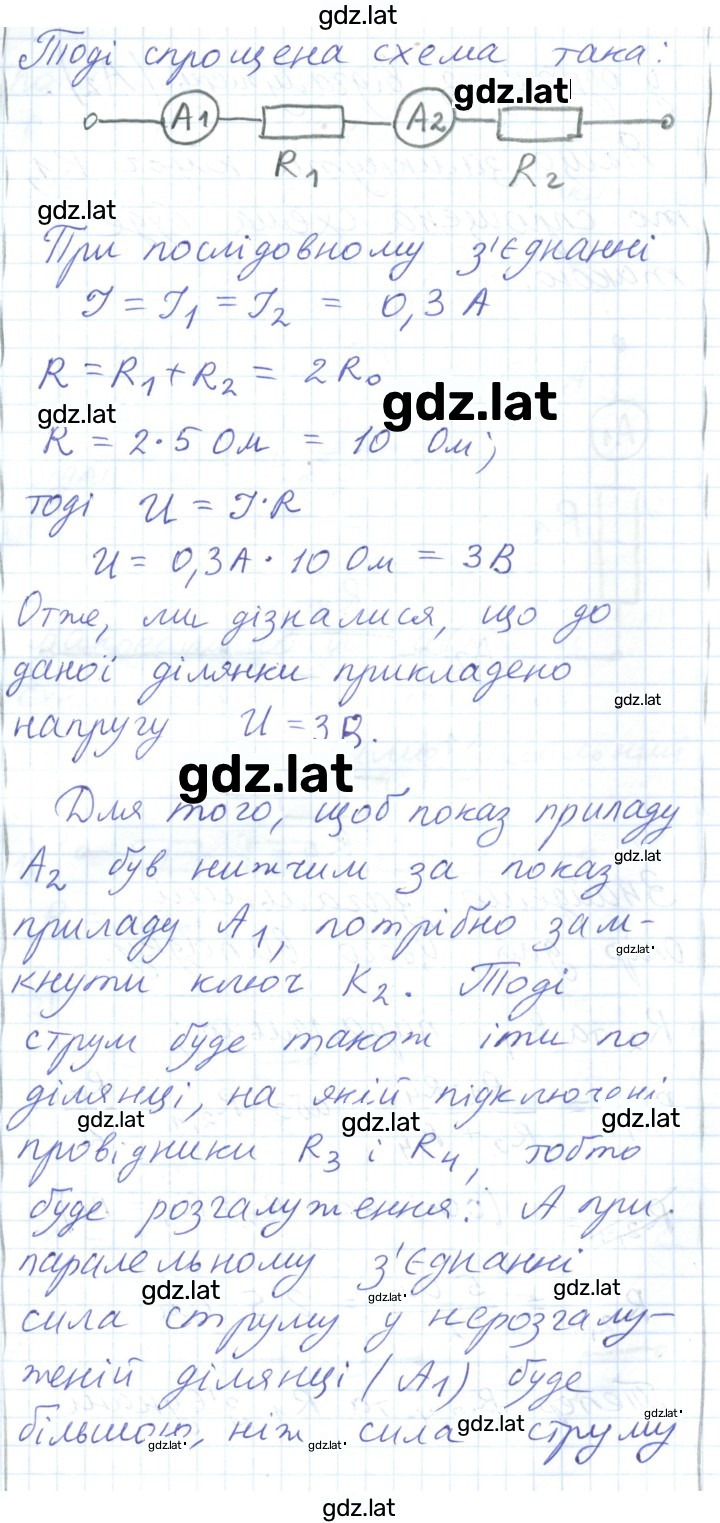 gdz.lat
Тоді спрощена схема така:
gdz.lat
A1 A2
R1 R2
gdz.lat
При послідовному з'єднанні
I = I1 = I2 = 0,3 А
R = R1 + R2 = 2R0
gdz.lat
gdz.lat
R = 2·5 Ом = 10 Ом;
тоді U = I·R
U = 0,3А · 10 Ом = 3В
Отже, ми дізналися, що до
даної ділянки прикладено
gdz.lat
напругу U = 3В.
gdz.lat
Для того, щоб показ приладу
А2 був нижчим за показ
gdz.lat
приладу А1, потрібно зам-
gdz.lat
кнути ключ К2. Тоді
струм буде також іти по
ділянці, на якій підключені
gdz.lat gdz.lat gdz.lat
провідники R3 і R4, тобто
буде розгалуження. А при
паралельному з'єднанні
gdz.lat gdz.lat gdz.lat
сила струму у нерозгалу-
женій ділянці (А1) буде
більшою, ніж сила струму
gdz.lat gdz.lat gdz.lat gdz.lat
gdz.lat